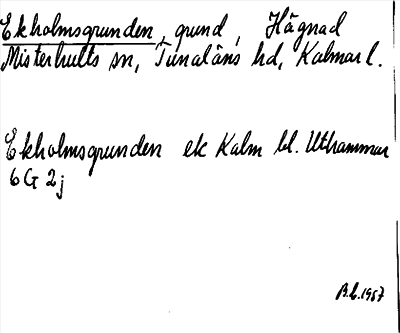 Ekholmsgrunden, grund, Hägnad
Misterhults sn, Tunaläns hd, Kalmar l.
Ekholmsgrunden ek Kalm bl. Uthammar
6G 2j
B.L. 1957